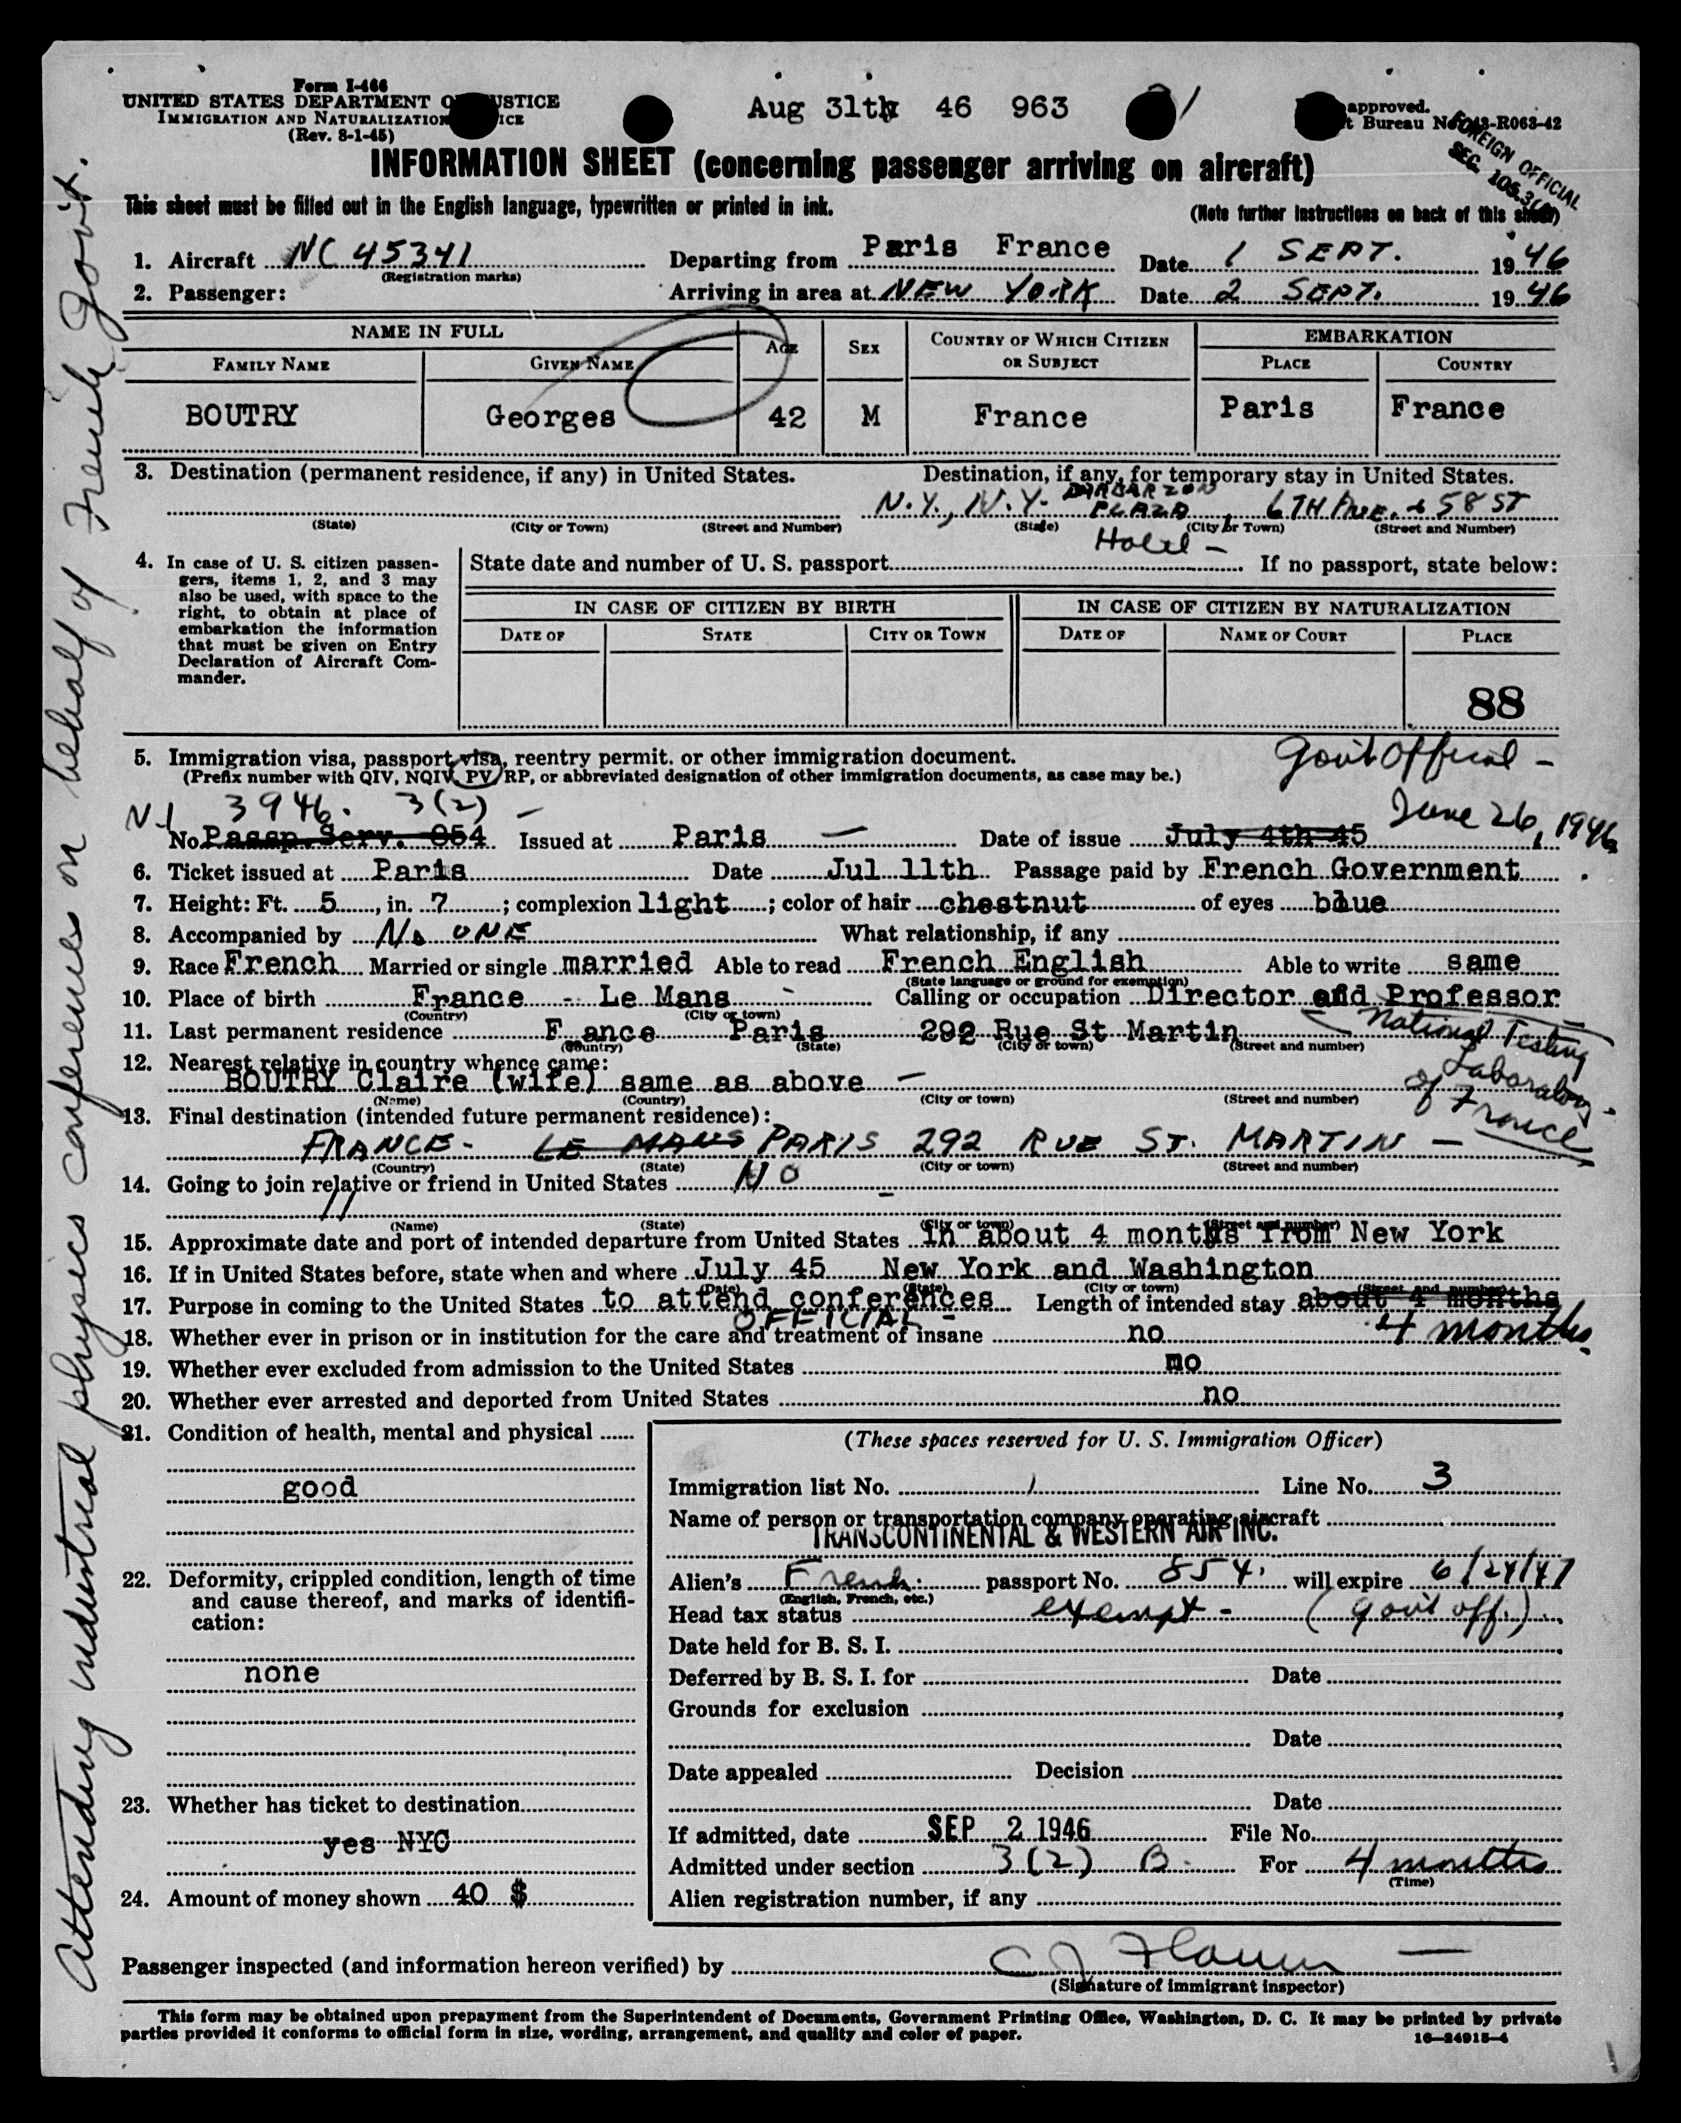 Form I-466
UNITED STATES DEPARTMENT OF JUSTICE
IMMIGRATION AND NATURALIZATION SERVICE
(Rev. 8-1-45)
Aug 31th 46 963
approved.
Bureau No. 43-R063-42
FOREIGN OFFICIAL
SEC. 105.3
INFORMATION SHEET (concerning passenger arriving on aircraft)
This sheet must be filled out in the English language, typewritten or printed in ink.
(Note further instructions on back of this sheet)
1. Aircraft NC 45341 Departing from Paris France Date 1 SEPT. 1946
(Registration marks)
2. Passenger: Arriving in area at NEW YORK Date 2 SEPT. 1946
NAME IN FULL AGE SEX COUNTRY OF WHICH CITIZEN OR SUBJECT EMBARKATION
FAMILY NAME GIVEN NAME PLACE COUNTRY
BOUTRY Georges 42 M France Paris France
3. Destination (permanent residence, if any) in United States. Destination, if any, for temporary stay in United States.
N.Y., N.Y. PLAZA Hotel - 6TH AVE. & 58 ST
(State) (City or Town) (Street and Number) (State) (City or Town) (Street and Number)
4. In case of U. S. citizen passengers, items 1, 2, and 3 may also be used, with space to the right, to obtain at place of embarkation the information that must be given on Entry Declaration of Aircraft Commander.
State date and number of U. S. passport If no passport, state below:
IN CASE OF CITIZEN BY BIRTH IN CASE OF CITIZEN BY NATURALIZATION
DATE OF STATE CITY OR TOWN DATE OF NAME OF COURT PLACE
88
5. Immigration visa, passport visa, reentry permit, or other immigration document.
(Prefix number with QIV, NQIV, PV, RP, or abbreviated designation of other immigration documents, as case may be.)
Gov't Official -
N-1 3946. 3(2) - June 26, 1946
No. Passp. Serv. 854 Issued at Paris Date of issue July 4th 45
6. Ticket issued at Paris Date Jul 11th Passage paid by French Government
7. Height: Ft. 5, in. 7; complexion light; color of hair chestnut of eyes blue
8. Accompanied by No ONE What relationship, if any
9. Race French Married or single married Able to read French English Able to write same
(State language or ground for exemption)
10. Place of birth France - Le Mans Calling or occupation Director and Professor
(Country) (City or town)
National Testing Laboratory of France
11. Last permanent residence F ance Paris 292 Rue St Martin
(Country) (State) (City or town) (Street and number)
12. Nearest relative in country whence came:
BOUTRY Claire (wife) same as above -
(Name) (Country) (City or town) (Street and number)
13. Final destination (intended future permanent residence):
FRANCE - LE MANS PARIS 292 RUE ST. MARTIN -
(Country) (State) (City or town) (Street and number)
14. Going to join relative or friend in United States NO -
(Name) (State) (City or town) (Street and number)
15. Approximate date and port of intended departure from United States in about 4 months from New York
16. If in United States before, state when and where July 45 New York and Washington
(Date) (State) (City or town) (Street and number)
17. Purpose in coming to the United States to attend conferences Length of intended stay about 4 months
OFFICIAL - 4 months
18. Whether ever in prison or in institution for the care and treatment of insane no
19. Whether ever excluded from admission to the United States no
20. Whether ever arrested and deported from United States no
21. Condition of health, mental and physical
good
22. Deformity, crippled condition, length of time and cause thereof, and marks of identification:
none
23. Whether has ticket to destination
yes NYC
24. Amount of money shown 40 $
(These spaces reserved for U. S. Immigration Officer)
Immigration list No. 1 Line No. 3
Name of person or transportation company operating aircraft
TRANSCONTINENTAL & WESTERN AIR INC.
Alien's French passport No. 854. will expire 6/24/47
(English, French, etc.)
Head tax status exempt - (gov't off.)
Date held for B. S. I.
Deferred by B. S. I. for Date
Grounds for exclusion
Date
Date appealed Decision
Date
If admitted, date SEP 2 1946 File No.
Admitted under section 3(2) B. For 4 months
(Time)
Alien registration number, if any
Passenger inspected (and information hereon verified) by
(Signature of immigrant inspector)
This form may be obtained upon prepayment from the Superintendent of Documents, Government Printing Office, Washington, D. C. It may be printed by private
parties provided it conforms to official form in size, wording, arrangement, and quality and color of paper.
16—24915-4
Attending industrial physics conferences on behalf of French Gov't.